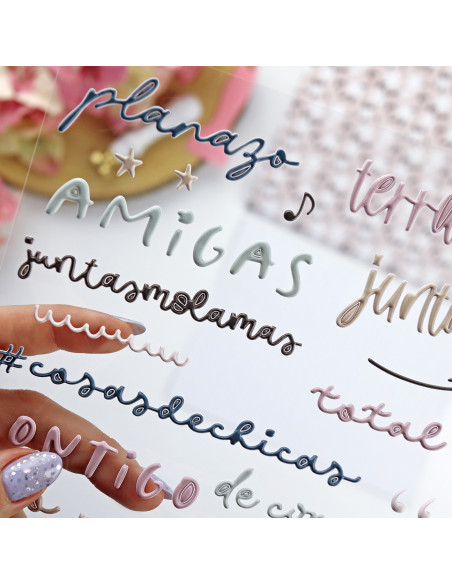 planazo
AMIGAS
juntasmolamas
#cosasdechicas
total
ONTIGO
de